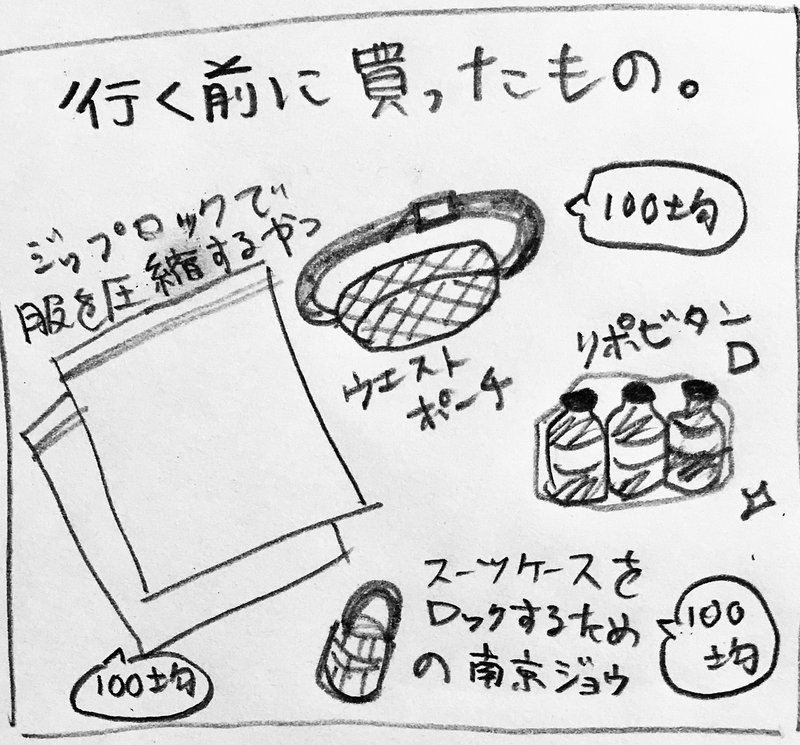 行く前に買ったもの。
ジップロックで
服を圧縮するやつ
100均
ウエスト
ポーチ
100均
リポビタン
D
スーツケースを
ロックするため
の南京ジョウ
100
均
100均